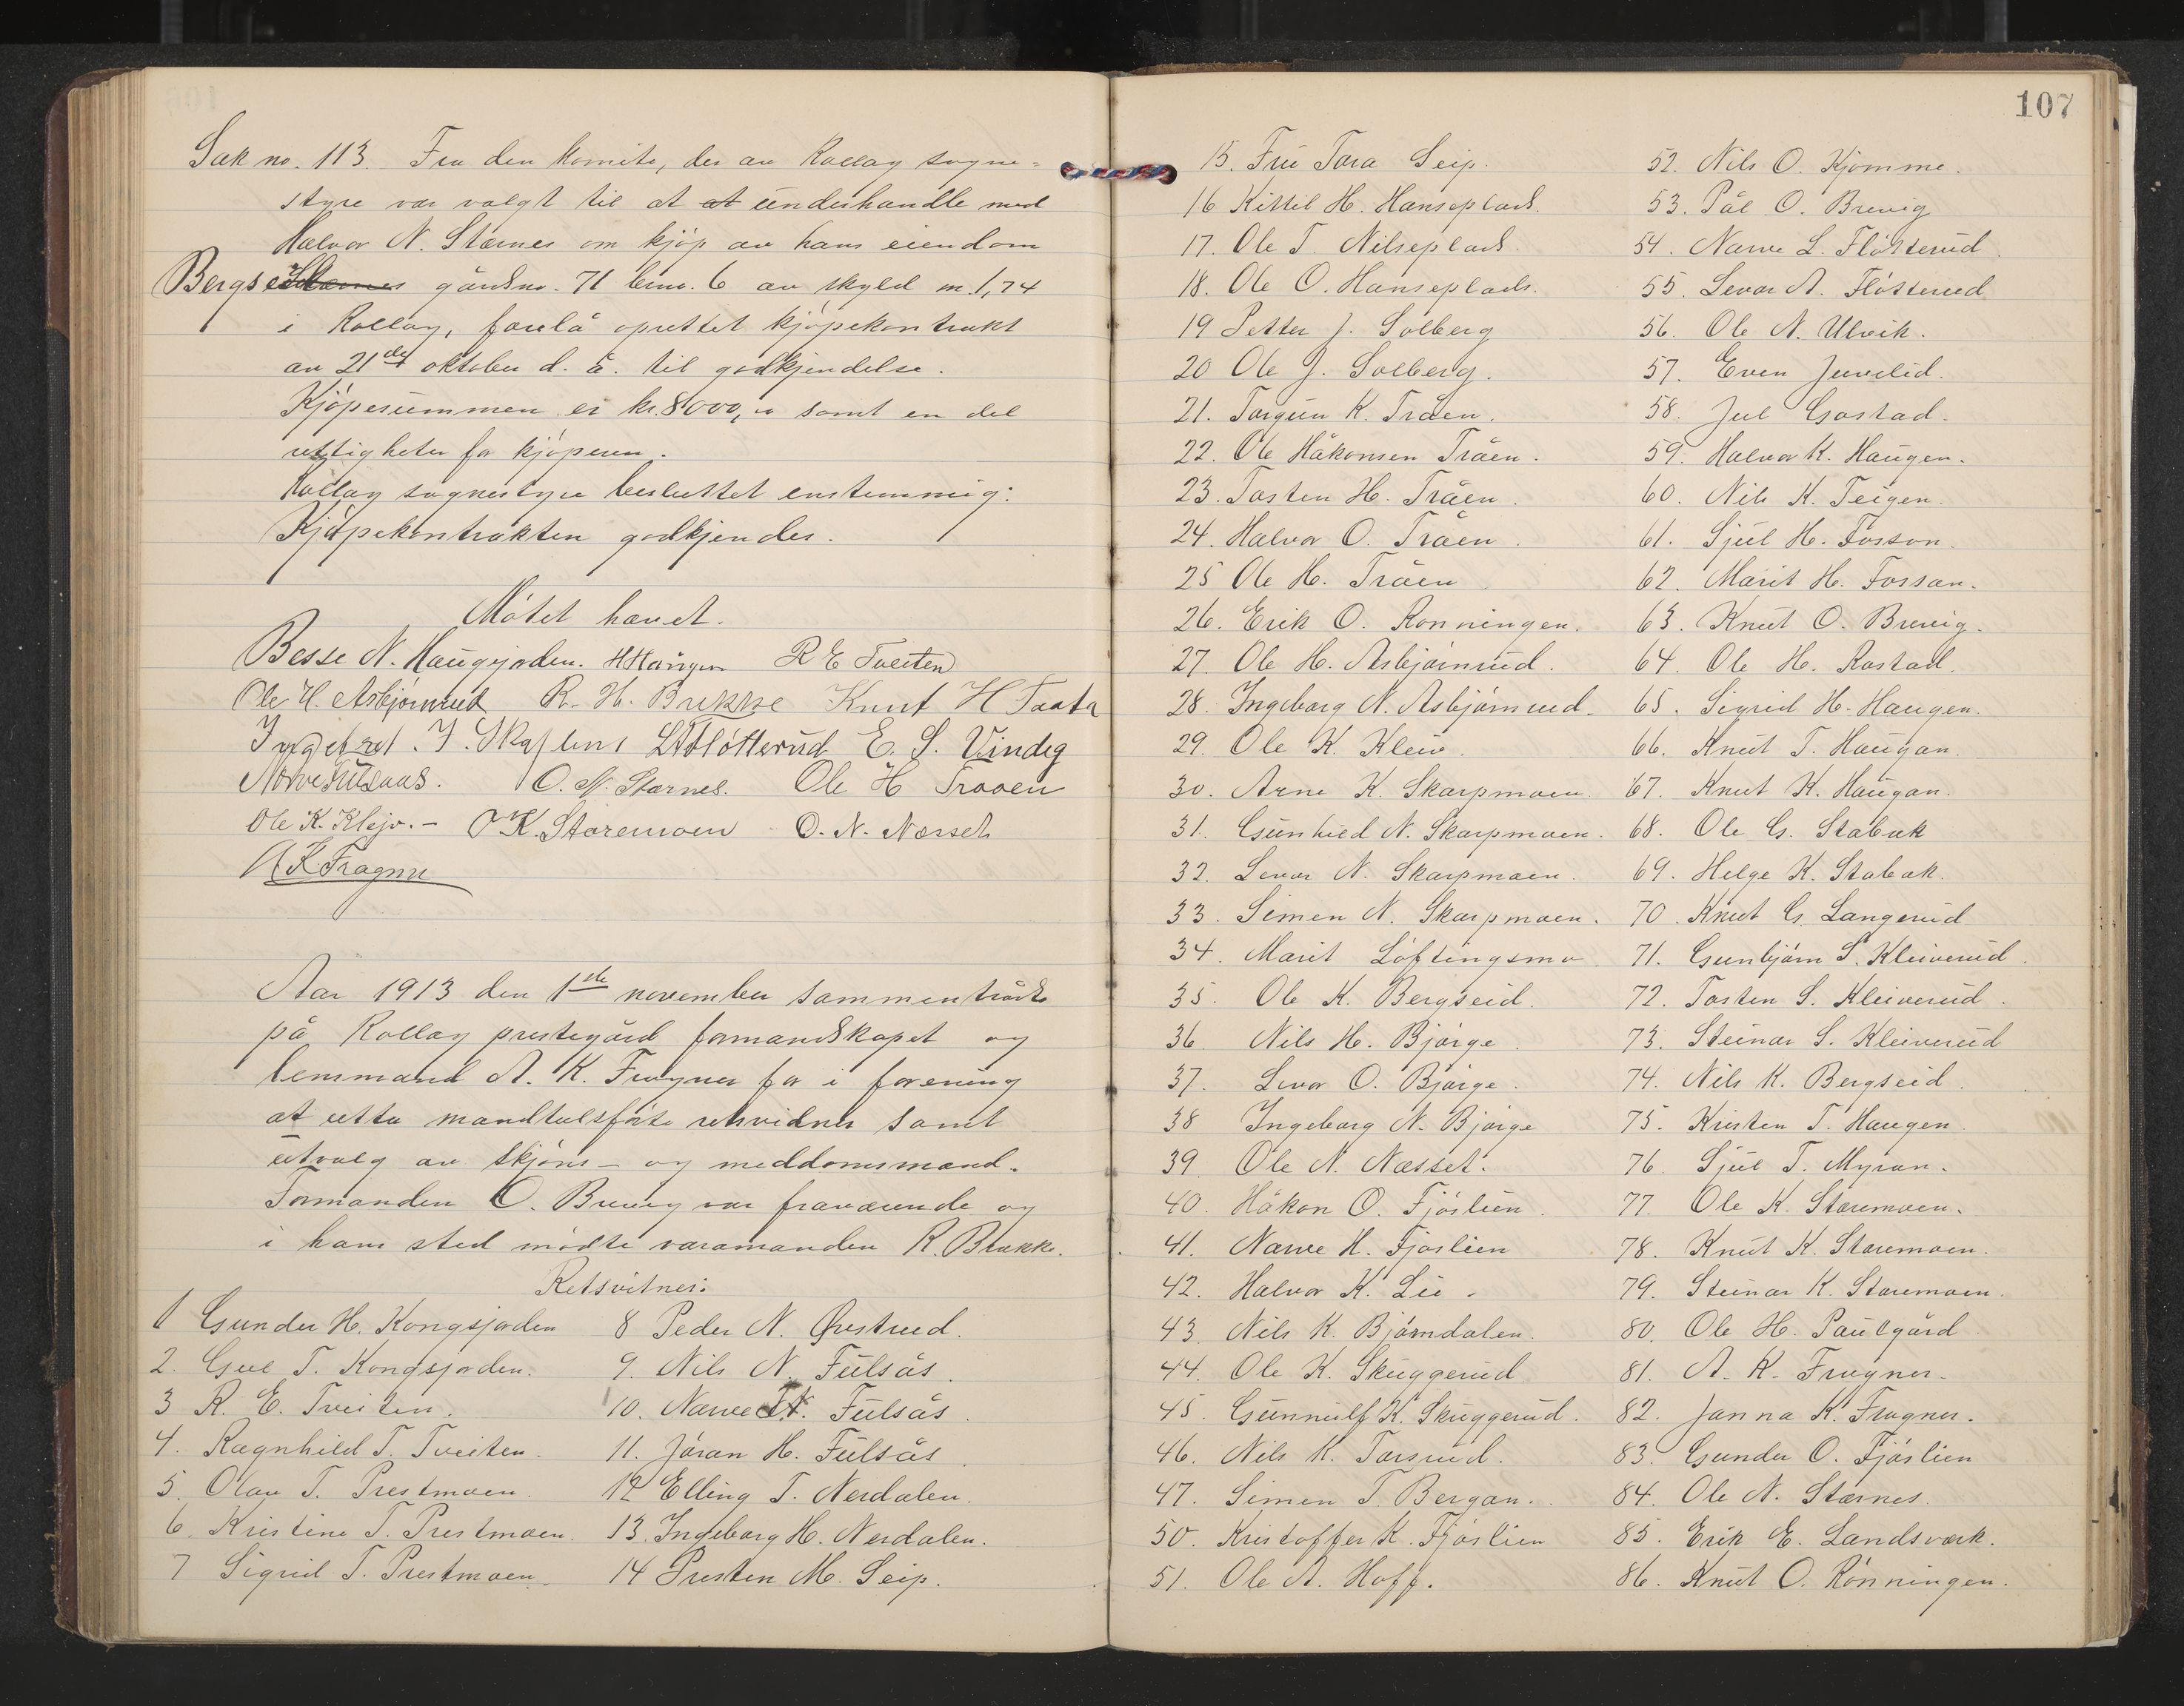 Sak no. 113. Fra den komite, der av Rollag sogne=
styre var valgt til at at underhandle med
Halvor N. Stærnes om kjøp av hans eiendom
Bergseid Stærnes gårdsno. 71 brno. 6 av skyld m. 1,74
i Rollag, forelå oprettet kjøpekontrakt
av 21de oktober d. å. til godkjendelse.
Kjøpesummen er kr. 8000,00 samt en del
rettigheter for kjøperen.
Rollag sognestyre besluttet enstemmig:
Kjøpekontrakten godkjendes.
Møtet hævet.
Besse N. Haugjorden. H Haugen R E Tveiten
Ole H. Asbjørnrud R. H. Brekke Knut H Taata
Ingebret. I. Skajlem L A Fløtterud E. S. Vindeg
Narve Fulsaas. O. N. Stærnes. Ole H Traaen
Ole K. Klejv. – O K. Staremoen O. N. Næsset
A K Fragner
Aar 1913 den 1ste november sammentrådte
på Rollag prestegård formandskapet og
lensmand A. K. Fragner for i forening
at utta mandtalsførte retsvidner samt
utvalg av skjøns– og meddomsmænd.
Formanden O. Brevig var fraværende og
i hans sted mødte varamanden R. Brekke.
Retsvitner:
1 Gunder H. Kongsjorden
2. Gul T. Kongsjorden.
3 R. E. Tveiten.
4. Ragnhild T. Tveiten.
5. Olav T. Prestmoen.
6. Kristine T. Prestmoen.
7 Sigrid T. Prestmoen.
8 Peder N. Ørstrud.
9. Nils N. Fulsås.
10. Narve N. Fulsås.
11. Jøran H. Fulsås.
12 Elling T. Nerdalen.
13. Ingeborg H. Nerdalen.
14 Presten M. Seip.
107
15. Fru Tora Seip.
16 Kittil H. Hanseplads.
17. Ole T. Nilseplads.
18. Ole O. Hanseplads.
19 Petter J. Solberg
20 Ole J. Solberg.
21. Torgun K. Tråen.
22. Ole Håkonsen Tråen.
23. Tosten H. Tråen.
24. Halvor O. Tråen.
25 Ole H. Tråen
26. Erik O. Rønningen.
27. Ole H. Asbjørnrud.
28. Ingeborg N. Asbjørnrud.
29. Ole K. Kleiv.
30. Arne K. Skarpmoen.
31. Gunhild N. Skarpmoen.
32. Levor N. Skarpmoen.
33. Simen N. Skarpmoen.
34. Marit Løftingsmo
35. Ole K. Bergseid.
36. Nils H. Bjørge.
37. Levor O. Bjørge.
38 Ingeborg N. Bjørge
39. Ole N. Næsset.
40. Håkon O. Fjøslien.
41. Narve H. Fjøslien
42. Halvor K. Lie.
43. Nils K. Bjørndalen.
44. Ole K. Skuggerud
45. Gunnulf K. Skuggerud.
46. Nils K. Torsrud.
47. Simen T. Bergan.
50. Kristoffer K. Fjøslien
51. Ole A. Hoff.
52. Nils O. Kjømme.
53. Pål O. Brevig
54. Narve L. Fløtterud.
55. Levor A. Fløtterud
56. Ole N. Ulvik.
57. Even Juvelid.
58. Jul Gostad.
59. Halvor K. Haugen.
60. Nils K. Teigen.
61. Sjul H. Fossan.
62. Marit H. Fossan.
63. Knut O. Brevig.
64. Ole H. Rostad.
65. Sigrid H. Haugen.
66. Knut T. Haugan.
67. Knut K. Haugan.
68. Ole G. Stabæk
69. Helge K. Stabæk.
70. Knut G. Langerud
71. Gunbjørn S. Kleiverud.
72. Tosten S. Kleiverud.
73. Steinar S. Kleiverud
74. Nils K. Bergseid.
75. Kristen T. Haugen.
76. Sjul T. Myran.
77. Ole K. Staremoen.
78. Knut K. Staremoen.
79. Steinar K. Staremoen.
80. Ole H. Paulgård.
81. A. K. Fragner.
82. Janna K. Fragner.
83. Gunder O. Fjøslien
84. Ole N. Stærnes.
85. Erik E. Landsværk.
86. Knut O. Rønningen.